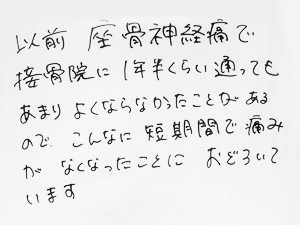 以前 座骨神経痛で
接骨院に 1年半くらい通っても
あまり よくならなかったことが ある
ので、こんなに 短期間で 痛み
が なくなったことに おどろいて
います